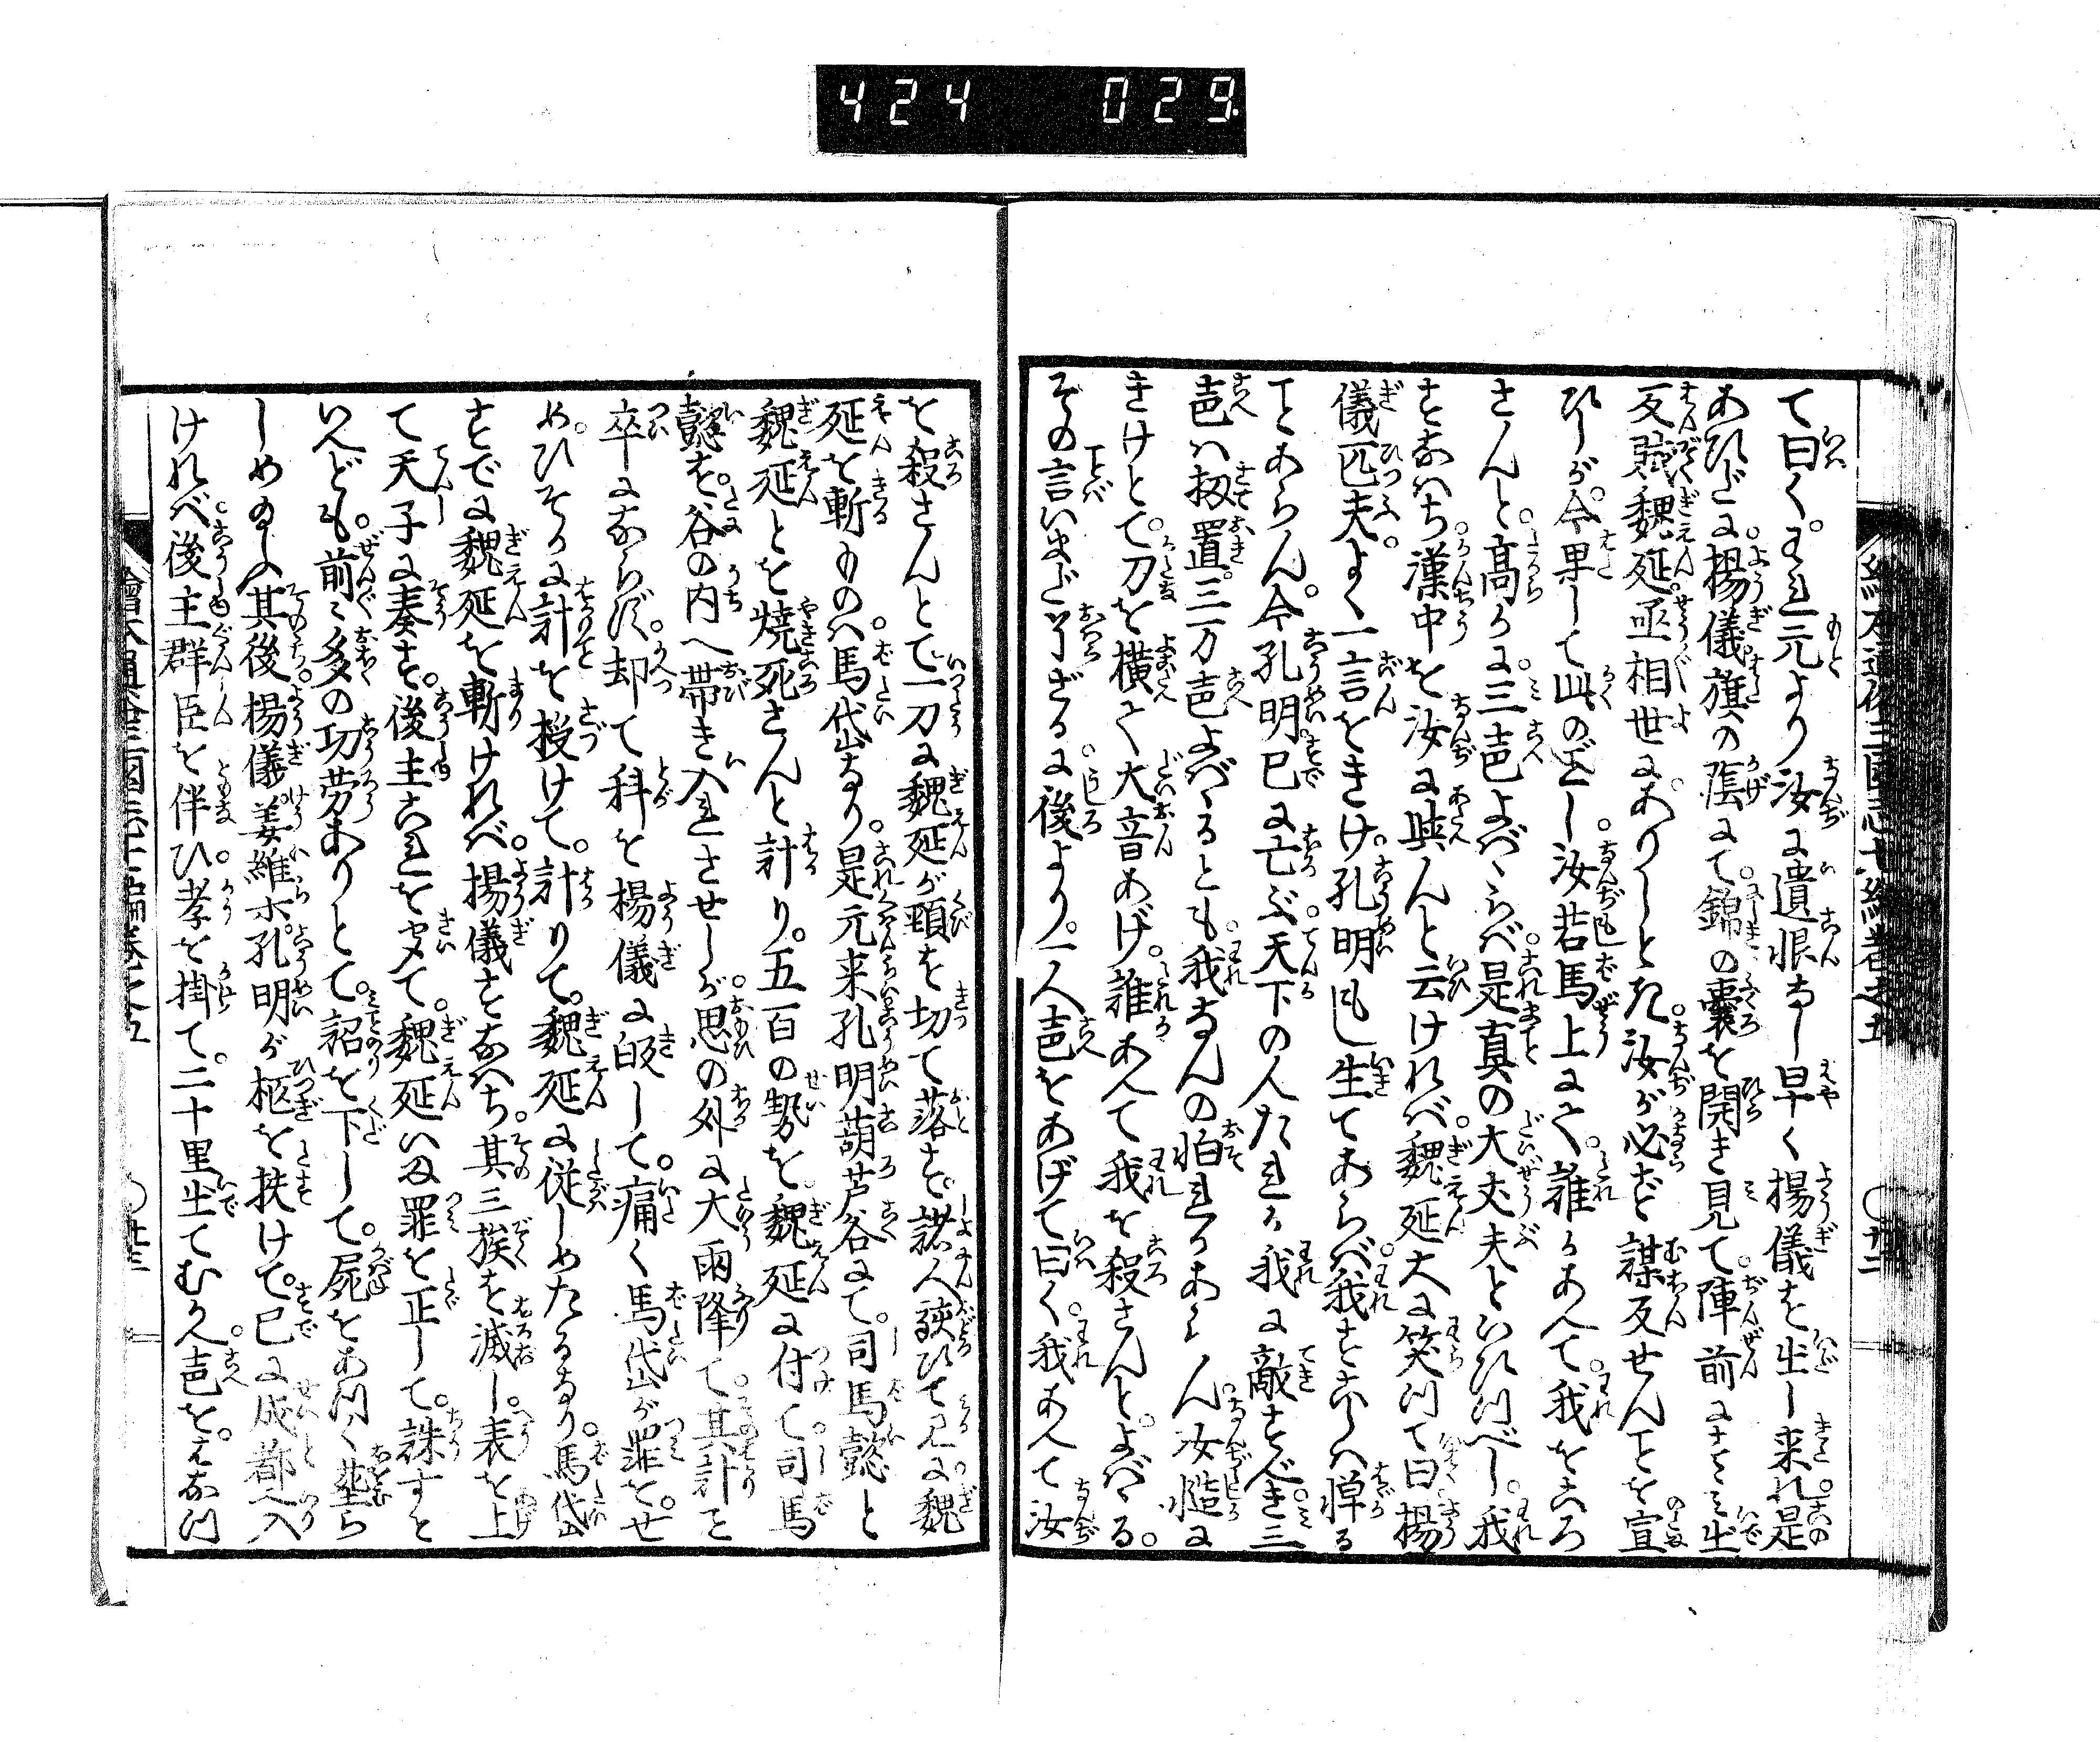 424 029
て曰く。われ元より汝に遺恨なし早く楊儀を出し来れ是
あひだに。楊儀旗の蔭にて。錦の嚢を開き見て。陣前にすゝミ出
反賊魏延。丞相世にありしとき。汝が必ず謀反せんことを宣
ひしが。今果して此のごとし。汝若馬上にて。誰かあへて。我をころ
さんと。高らかに。三声よばゝらバ。是真の大丈夫といひつべし。我
すなハち。漢中を汝に与んと云けれバ。魏延大に笑つて曰。楊
儀匹夫。よく一言をきけ。孔明もし生てあらバ。我すこしハ憚る
ことあらん。今孔明。已に亡ぶ。天下の人たれか我に敵すべき。三
声ハ扨置。三万声よばゝるとも。我なんの怕るゝかあらん。汝慥に
きけとて。刀を横たへ大音あげ。誰あへて我を殺さんと。よばゝる。
その言いまだ了ざるに。後より。一人声をあげて曰く。我あへて汝
を殺さんとて。一刀に魏延が頸を切て落す。諸人駭ひて見るに。魏
延を斬ものハ。馬岱なり。是元来孔明葫芦谷にて。司馬懿と
魏延とを焼死さんと計り。五百の勢を。魏延に付て。司馬
懿を。谷の内へ帯き入れさせしが。思の外に大雨降て。其計こと
卒にならず。却て科を楊儀に皈して。痛く馬岱が罪を。せ
め。ひそかに計を授けて。計りて。魏延に従しめたるなり。馬岱
すでに魏延を斬けれバ。楊儀すなハち。其三族を滅し。表を上
て天子に奏す。後主これを聞て。魏延ハ罪を正して。誅すと
いへども。前々多の功労ありとて。詔を下して。屍をあつく葬ら
しめ給ふ。其後楊儀。姜維ホ。孔明が柩を扶けて。已に成都へ入
けれバ。後主群臣を伴ひ。孝を掛て。二十里出てむかへ。声をはなつ
繪本通俗三國志七編卷之五
廿三